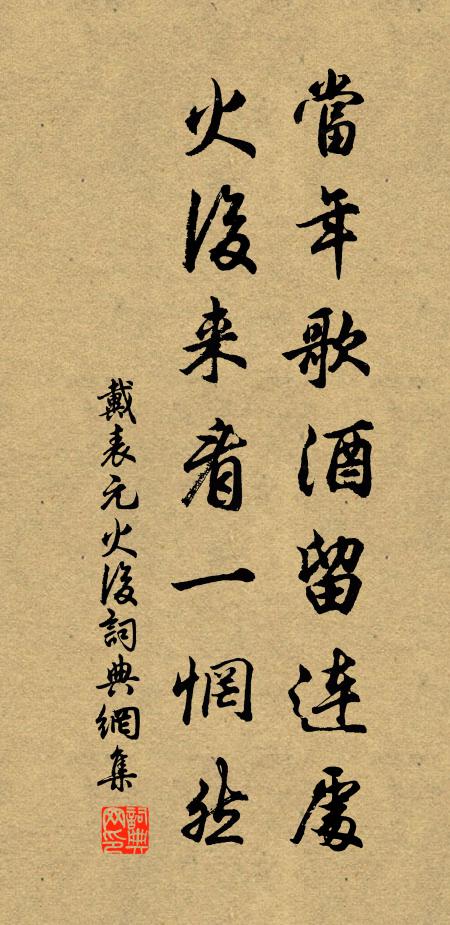 當年歌酒留連處
火後来看一惘然
戴表元火後詞典網集
詞典網印